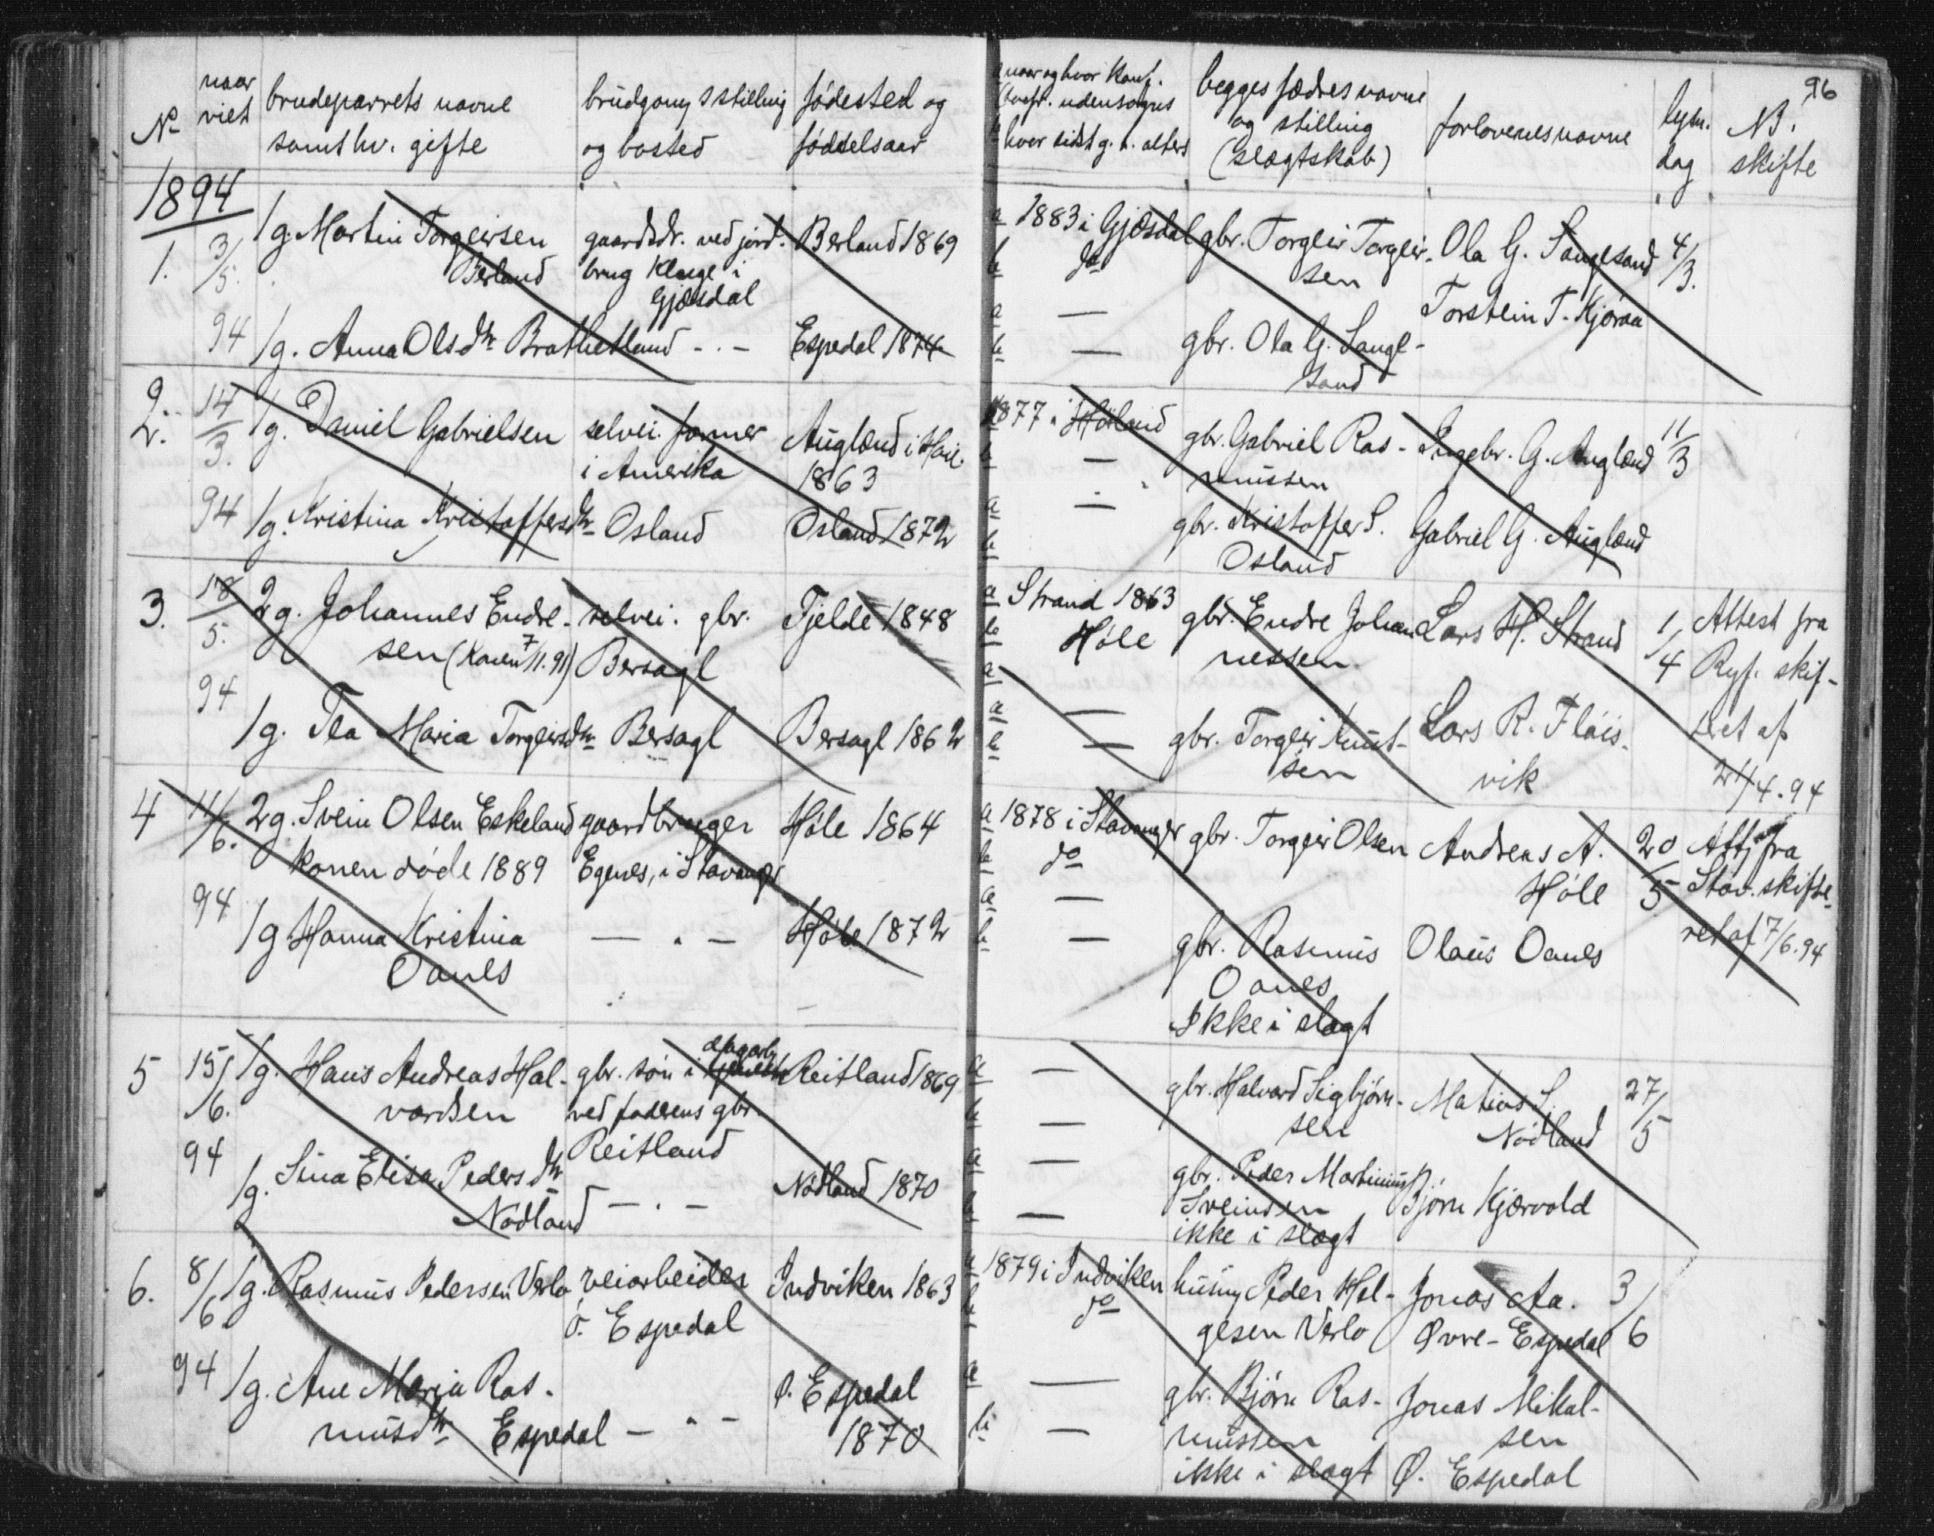 96
No
naar viet
brudeparrets navne samt hv. gifte
brudgoms stilling og bosted
fødested og fødselsaar
a naar og hvor konf.
hvor sidst g. t. alters
begges fædres navne og stilling (slægtskab)
forlovernes navne
lysn. dag
NB. skifte
1894
1. 3/5. 94
1g. Martin Torgeirsen
Berland
gaardsdr. ved jord-
brug
Gjæsdal
Berland 1869
a 1883 i Gjæsdal
b do
gbr. Torgeir Torgeir-
sen
Ola G. Sangesand
4/3.
1g. Anna Olsdtr Brathetland - . -
Espedal 1874
a —
b —
gbr. Ola G. Sange-
sand
Torstein T. Kjøraa
2. 14/3. 94
1g. Daniel Gabrielsen
selvei. farmer
i Amerika
Augland i Høil.
1863
1877 i Høiland
b —
gbr. Gabriel Ras-
mussen
Ingebr. G. Augland
11/3
1g. Kristina Kristoffersdtr Osland
Osland 1872
a —
b
gbr. Kristoffer S.
Osland
Gabriel G. Augland
3. 18/5. 94
2g. Johannes Endre-
sen (Konen 7/11.91)
selvei. gbr.
Bersagl
Tjelde 1848
a Strand 1863
b Høle
gbr. Endre Johan-
nessen
Lars H. Strand
1/4
Attest fra
Ryf. skif-
teret af
21/4.94
1g. Tea Maria Torgeirsdtr Bersagl
Bersagl 1862
a —
b —
gbr. Torgeir Knut-
sen
Lars R. Fløis-
vik
4 11/6. 94
2g. Svein Olsen Eskeland
konen døde 1889
gaardbruger
Egenes, i Stavanger
Høle 1864
a 1878 i Stavanger
b do
gbr. Torgeir Olsen
Andreas A.
Høle
20/5
Att. fra
Stav. skifte-
ret af 7/6.94
1g Hanna Kristina
Oanes
— . —
Høle 1872
a —
b —
gbr. Rasmus
Oanes
Ikke i slægt
Olaus Oanes
5 15/6. 94
1g. Hans Andreas Hal-
vardsen
gbr. søn i
ved faderens gbr.
Reitland
Reitland 1869
a —
b —
gbr. Halvard Sigbjørn-
sen
Matias S.
Nødland
27/5
1g. Sina Elisa Pedersdtr
Nødland
— . —
Nødland 1870
a —
b —
gbr. Peder Martinius
Sveinsen
ikke i slægt
Bjørn Kjærvold
6. 8/6 94
1g. Rasmus Pedersen Verlo
veiarbeider
ø. Espedal
Indviken 1863
a 1879 i Indviken
b do
husm. Peder Hel-
gesen Verlo
Jonas Aa.
Øvre-Espedal
3/6
1g. Ane Marja Ras-
musdtr Espedal
— . —
ø. Espedal
1870
a —
b —
gbr. Bjørn Ras-
mussen
ikke i slægt
Jonas Mikal-
sen
Ø. Espedal